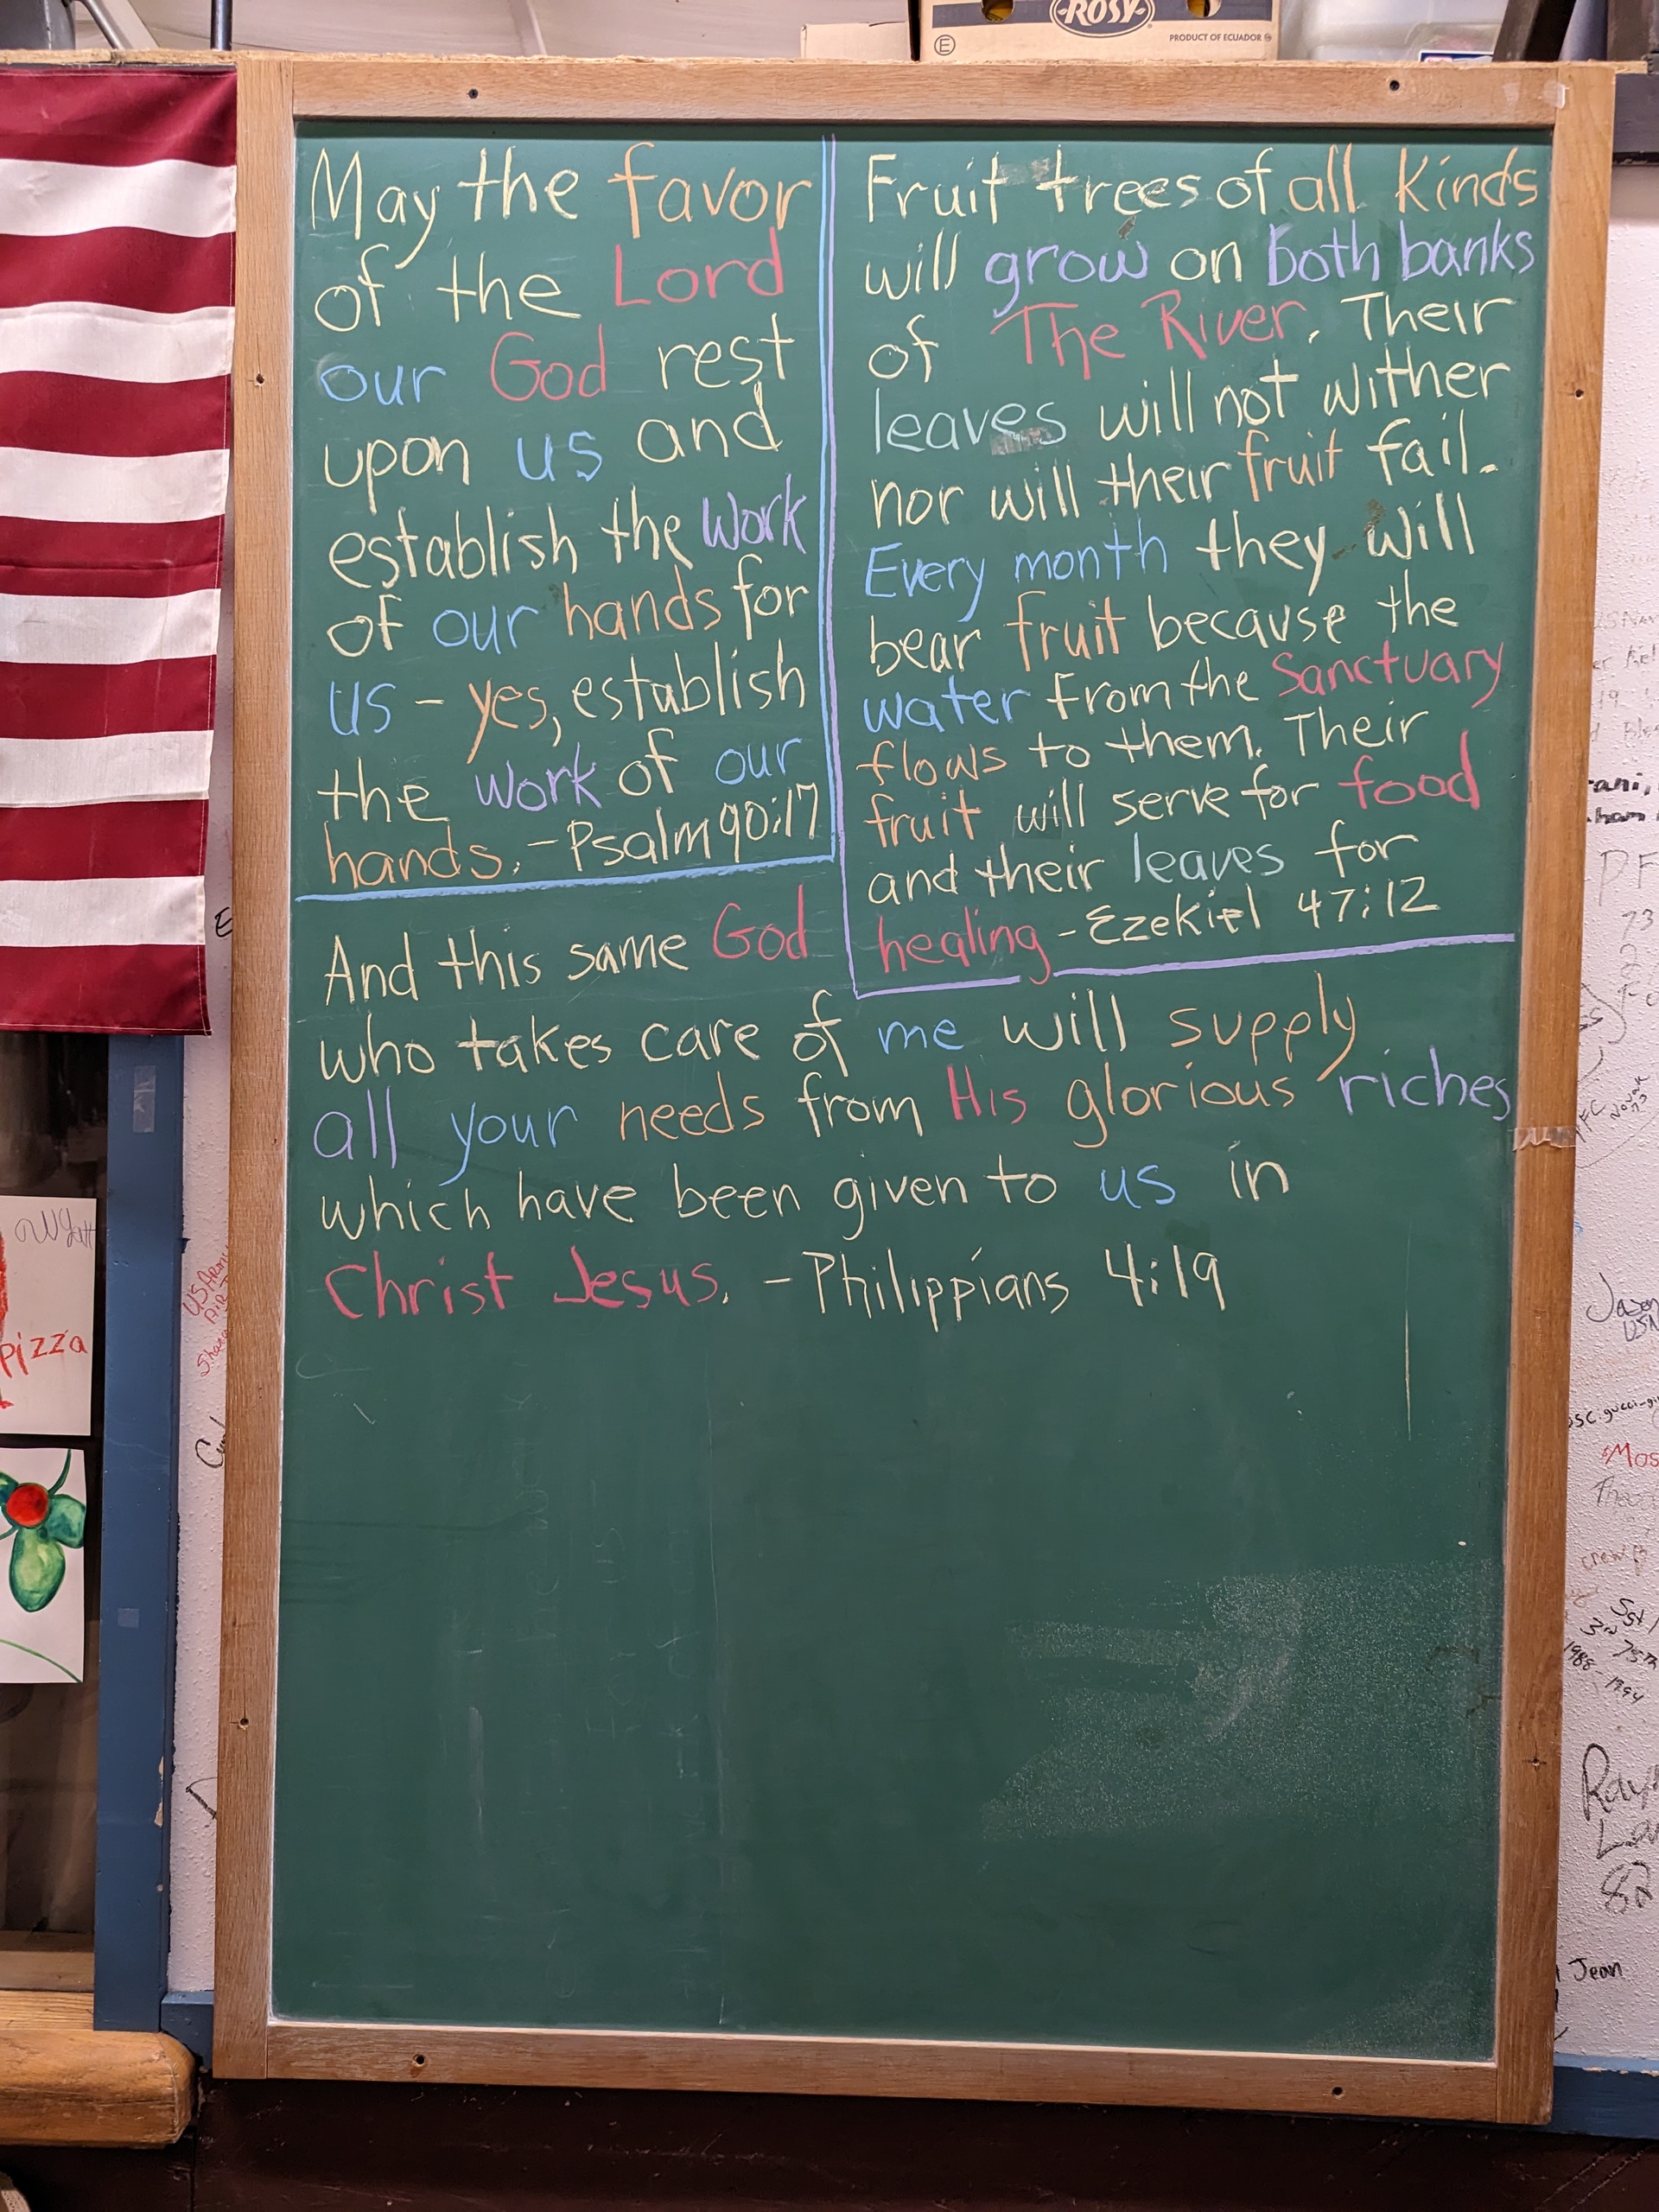 ROSY
E
PRODUCT OF ECUADOR
May the favor
of the Lord
our God rest
upon us and
establish the work
of our hands for
us - yes, establish
the work of our
hands. - Psalm 90:17
Fruit trees of all Kinds
will grow on both banks
of The River. Their
leaves will not wither
nor will their fruit fail.
Every month they will
bear fruit because the
water from the Sanctuary
flows to them. Their
fruit will serve for food
and their leaves for
healing - Ezekiel 47:12
And this same God
who takes care of me will supply
all your needs from His glorious riches
which have been given to us in
Christ Jesus. - Philippians 4:19
pizza
US ARMY
Jason
USN
Sgt
3rd 75th
1988-1994
Jean